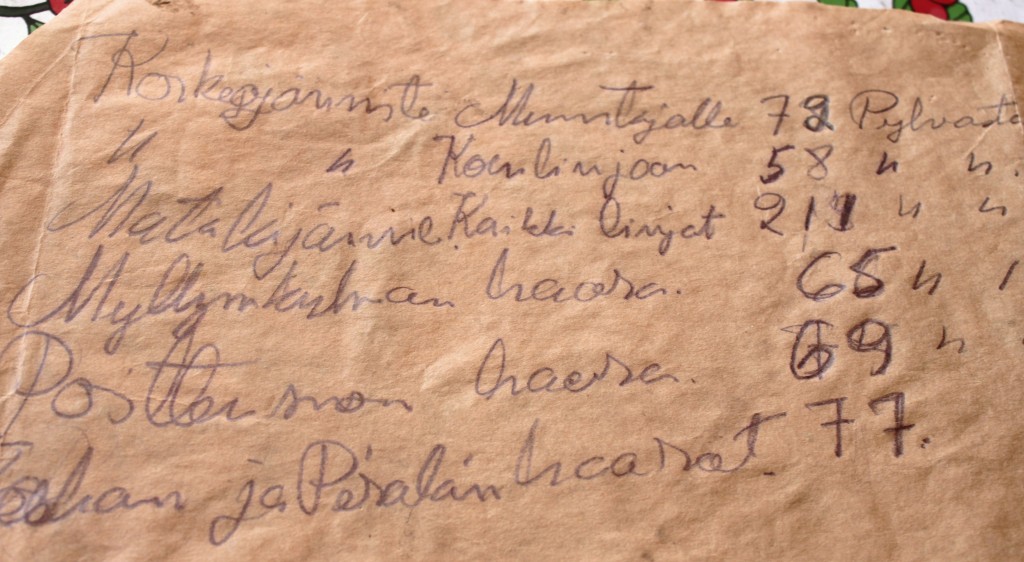 Korkeajännite Muuntajalle 72 Pylvästä
" " Koulinjaan 58 " ".
Matalajännie. Kaikki linjat 211 " "
Myllymkulman haara. 65 " "
haara. 69 "
ja Perälän haarat. 77.